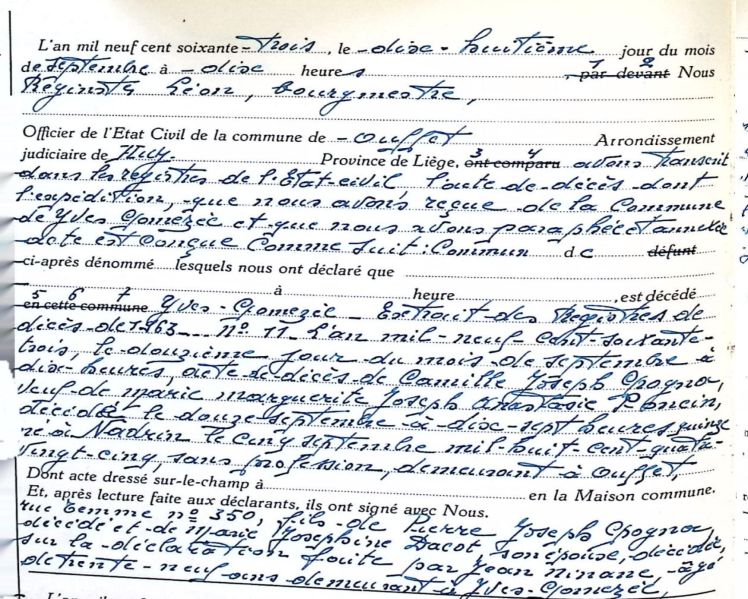 L'an mil neuf cent soixante-trois, le -dix-huitième jour du mois
de septembre à -dix heures 1 2 par devant Nous
Réginster Léon, bourgmestre,
Officier de l'Etat Civil de la commune de -Ouffet Arrondissement
judiciaire de Huy. Province de Liège, 3 4 ont comparu avons transcrit
dans les registres de l'Etat-civil, l'acte-de-décès dont
l'expédition, que nous avons reçue de la Commune
de Yves-Gomezée et que nous avons paraphée et annexée
acte est conçue comme suit: Commun d c défunt
ci-après dénommé lesquels nous ont déclaré que
à heure , est décédé
5 6 7 en cette commune Yves-Gomezée - Extrait des Registres de
décès de 1963 - n° 11 - L'an mil-neuf-cent-soixante-
trois, le douzième jour du mois de septembre à
dix-heures, acte de décès de Camille Joseph Gpogna,
veuf de Marie Marguerite Joseph Anastasie Poncin,
décédé le douze septembre à dix-sept heures quinze
né à Nadrin le cinq septembre mil-huit-cent-quatre-
vingt-cinq, sans profession, demeurant à Ouffet,
Dont acte dressé sur-le-champ à en la Maison commune.
Et, après lecture faite aux déclarants, ils ont signé avec Nous.
rue Temme n° 350, fils de Pierre Joseph Gpogna,
décédé et de Marie Josephine Dacot, son épouse, décédée,
sur la déclaration faite par Jean Ninane, âgé
de trente-neuf ans demeurant à Yves-Gomezée,